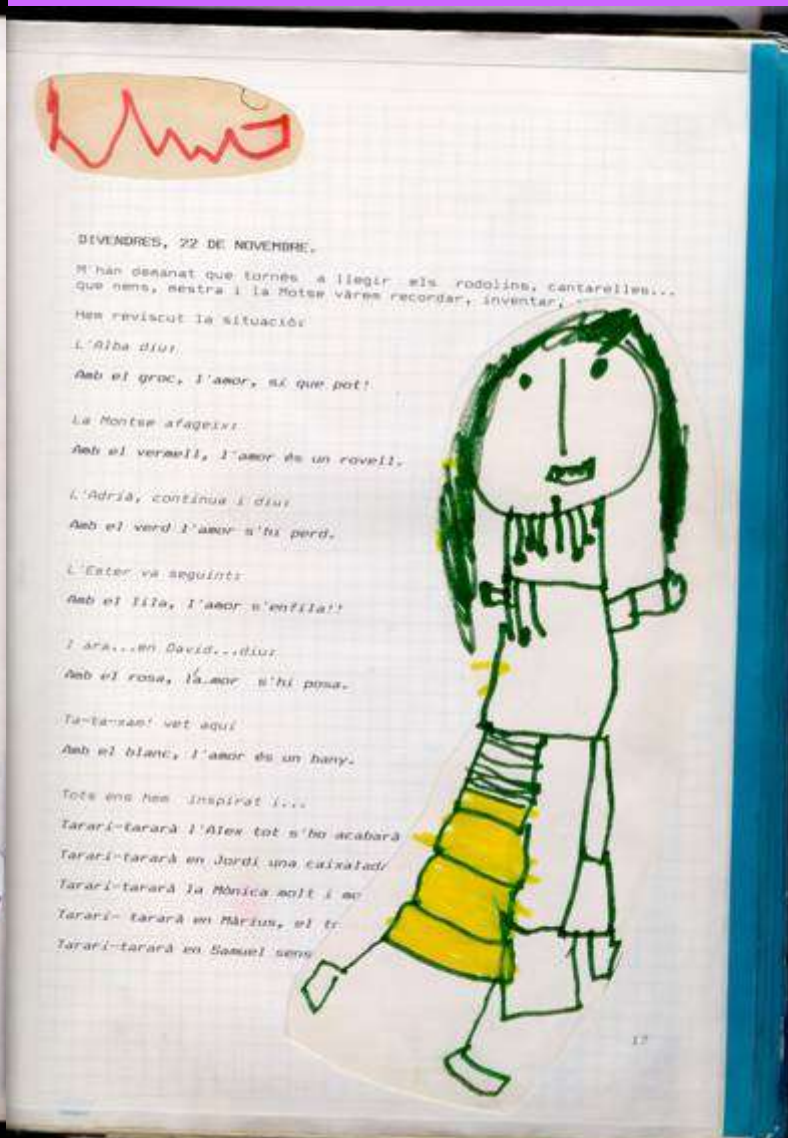 DIVENDRES, 22 DE NOVEMBRE.
M'han demanat que tornés a llegir els rodolins, cantarelles...
que nens, mestra i la Motse vàrem recordar, inventar,
Hem reviscut la situació:
L'Alba diu:
Amb el groc, l'amor, sí que pot!
La Montse afageix:
Amb el vermell, l'amor és un rovell.
L'Adrià, continua i diu:
Amb el verd l'amor s'hi perd.
L'Ester va seguint:
Amb el lila, l'amor s'enfila!!
I ara...en David...diu:
Amb el rosa, l'a.mor s'hi posa.
Ta-ta-xam! vet aquí
Amb el blanc, l'amor és un bany.
Tots ens hem inspirat i...
Tararí-tararà l'Alex tot s'ho acabarà
Tararí-tararà en Jordi una caixalada
Tararí-tararà la Mònica molt i
Tararí- tararà en Màrius, el
Tararí-tararà en Samuel sens
17